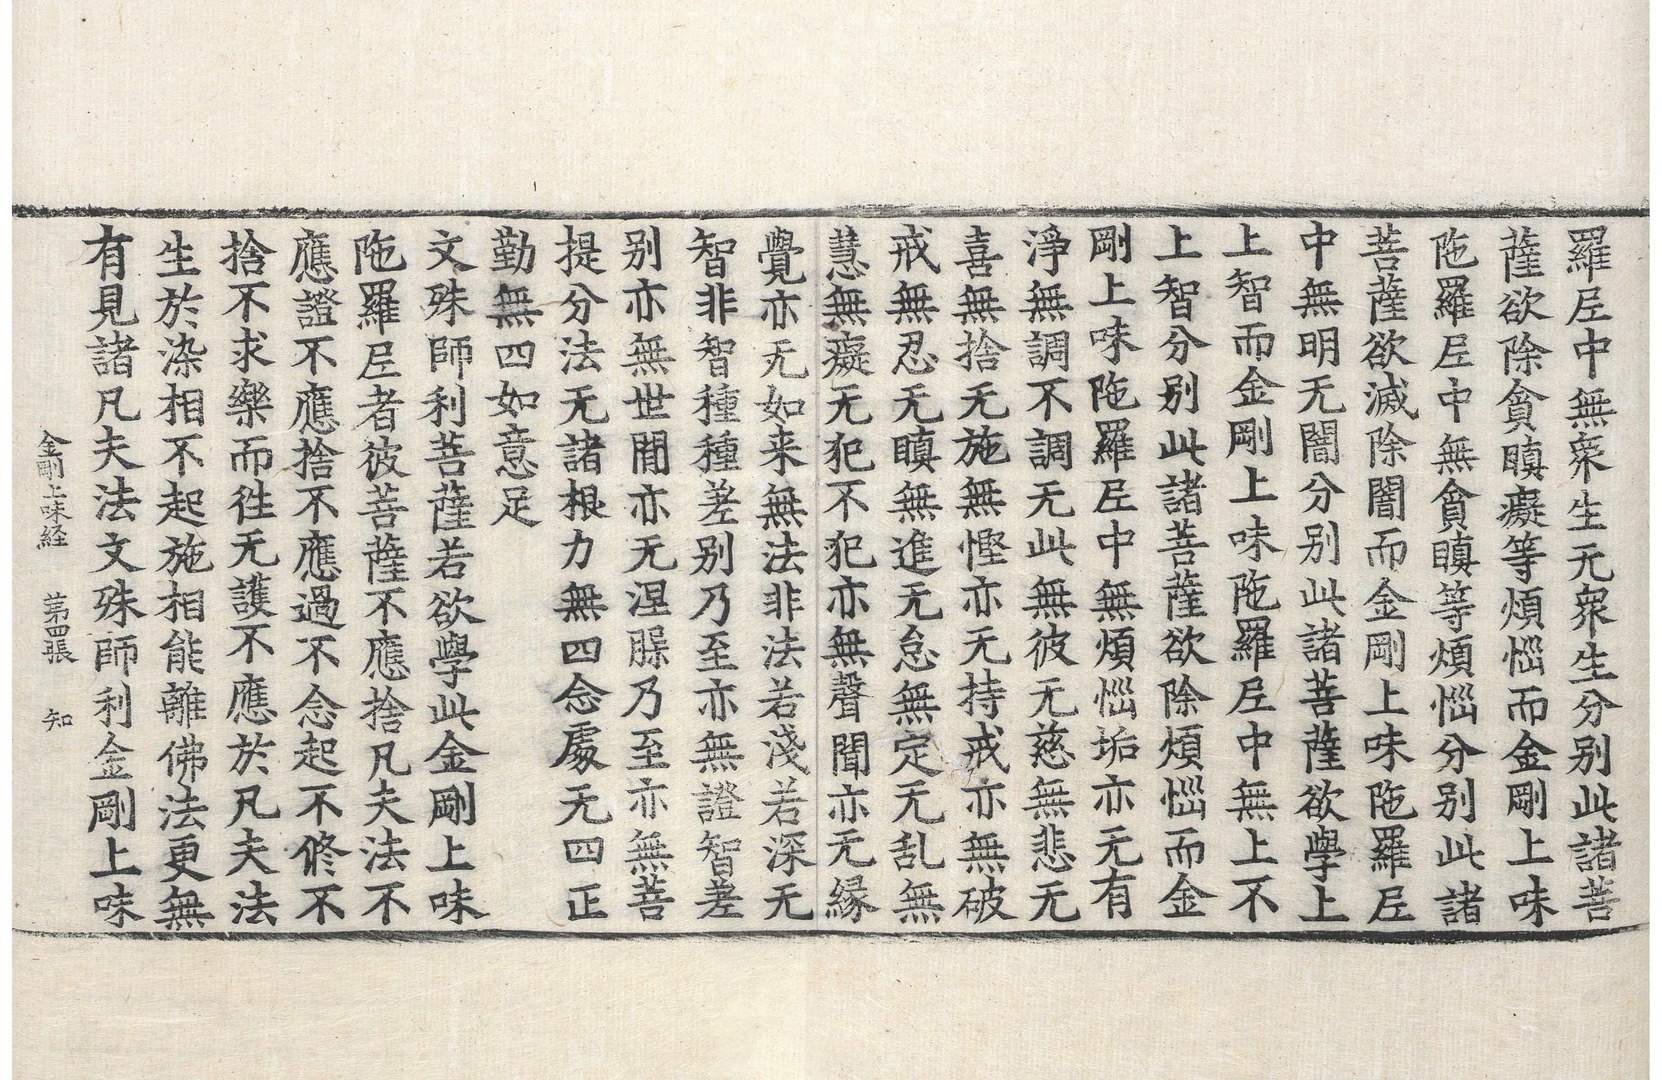 羅𡰱中無衆生无衆生分别此諸菩
薩欲除貪瞋癡等煩惱而金剛上味
陁羅𡰱中無貪瞋等煩惱分别此諸
菩薩欲滅除闇而金剛上味陁羅𡰱
中無明无闇分别此諸菩薩欲學上
上智而金剛上味陁羅𡰱中無上不
上智分别此諸菩薩欲除煩惱而金
剛上味陁羅𡰱中無煩惱垢亦无有
淨無調不調无此無彼无慈無悲无
喜無捨无施無慳亦无持戒亦無破
戒無忍无瞋無進无怠無定无乱無
慧無癡无犯不犯亦無聲聞亦无縁
覺亦无如来無法非法若淺若深无
智非智種種差别乃至亦無證智差
别亦無世間亦无涅槃乃至亦無菩
提分法无諸根力無四念處无四正
勤無四如意足
文殊師利菩薩若欲學此金剛上味
陁羅𡰱者彼菩薩不應捨凡夫法不
應證不應捨不應過不念起不修不
捨不求樂而徃无護不應於凡夫法
生於染相不起施相能離佛法更無
有見諸凡夫法文殊師利金剛上味
金剛上味経　第四張　知